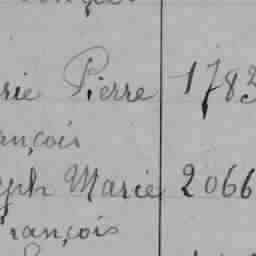 rie Pierre 1783
ançois
eph Marie 2066
rançois